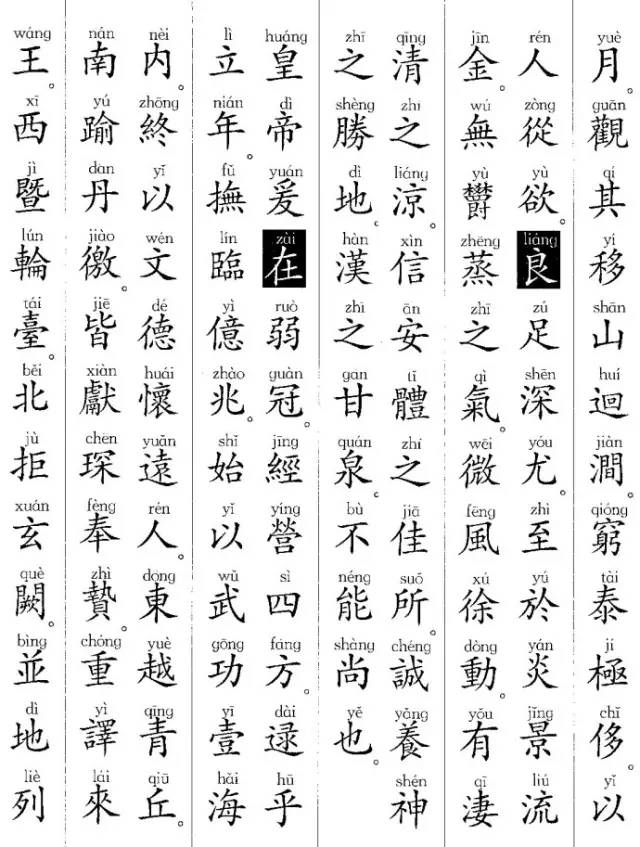 yuè guān qí yí shān huí jiàn qióng tài jí chǐ yǐ
月觀。其移山迴澗。窮泰極侈。以
rén zòng yù liáng zú shēn yóu zhì yú yán jǐng liú
人從欲。良足深尤。至於炎景流
jīn wú yù zhēng zhī qì wēi fēng xú dòng yǒu qī
金。無鬱蒸之氣。微風徐動。有淒
qīng zhī liáng xìn ān tǐ zhī jiā suǒ chéng yǎng shén
清之涼。信安體之佳所。誠養神
zhī shèng dì hàn zhī gān quán bù néng shàng yě
之勝地。漢之甘泉。不能尚也。
huáng dì yuán zài ruò guàn jīng yíng sì fāng dài hū
皇帝爰在弱冠。經營四方。逮乎
lì nián fǔ lín yì zhào shǐ yǐ wǔ gōng yī hǎi
立年。撫臨億兆。始以武功壹海
nèi zhōng yǐ wén dé huái yuǎn rén dōng yuè qīng qiū
內。終以文德懷遠人。東越青丘。
nán yú dān jiào jiē xiàn chēn fèng zhì chóng yì lái
南踰丹徼。皆獻琛奉贄重譯來
wáng xī jì lún tái běi jù xuán què bìng dì liè
王。西暨輪臺。北拒玄闕。並地列